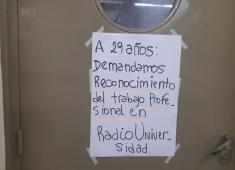 A 29 años:
Demandamos
Reconocimiento
del trabajo Profe-
sional en
Radio Univer-
sidad.